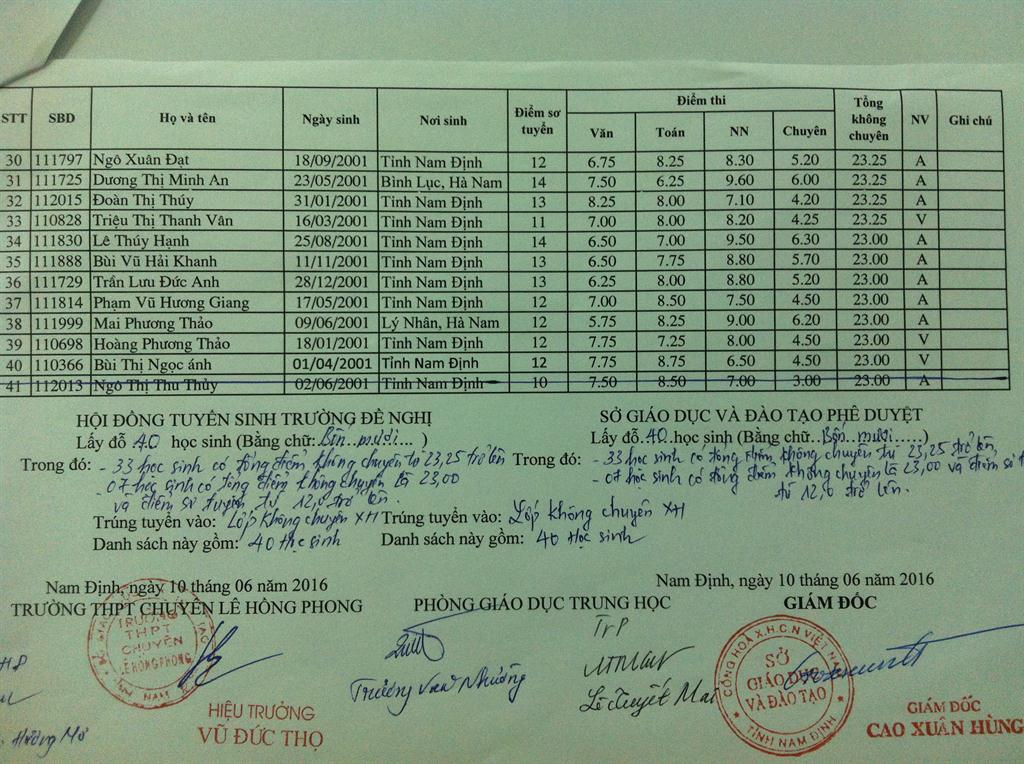 STT SBD Họ và tên Ngày sinh Nơi sinh Điểm sơ tuyển Điểm thi Tổng không chuyên NV Ghi chú
Văn Toán NN Chuyên
30 111797 Ngô Xuân Đạt 18/09/2001 Tỉnh Nam Định 12 6.75 8.25 8.30 5.20 23.25 A
31 111725 Dương Thị Minh An 23/05/2001 Bình Lục, Hà Nam 14 7.50 6.25 9.60 6.00 23.25 A
32 112015 Đoàn Thị Thúy 31/01/2001 Tỉnh Nam Định 13 8.25 8.00 7.10 4.20 23.25 A
33 110828 Triệu Thị Thanh Vân 16/03/2001 Tỉnh Nam Định 11 7.00 8.00 8.20 4.25 23.25 V
34 111830 Lê Thúy Hạnh 25/08/2001 Tỉnh Nam Định 14 6.50 7.00 9.50 6.30 23.00 A
35 111888 Bùi Vũ Hải Khanh 11/11/2001 Tỉnh Nam Định 13 6.50 7.75 8.80 5.70 23.00 A
36 111729 Trần Lưu Đức Anh 28/12/2001 Tỉnh Nam Định 13 6.25 8.00 8.80 5.20 23.00 A
37 111814 Phạm Vũ Hương Giang 17/05/2001 Tỉnh Nam Định 12 7.00 8.50 7.50 4.50 23.00 A
38 111999 Mai Phương Thảo 09/06/2001 Lý Nhân, Hà Nam 12 5.75 8.25 9.00 6.20 23.00 A
39 110698 Hoàng Phương Thảo 18/01/2001 Tỉnh Nam Định 12 7.75 7.25 8.00 4.50 23.00 V
40 110366 Bùi Thị Ngọc ánh 01/04/2001 Tỉnh Nam Định 12 7.75 8.75 6.50 4.50 23.00 V
41 112013 Ngô Thị Thu Thủy 02/06/2001 Tỉnh Nam Định 10 7.50 8.50 7.00 3.00 23.00 A
HỘI ĐỒNG TUYỂN SINH TRƯỜNG ĐỀ NGHỊ
Lấy đỗ 40 học sinh (Bằng chữ: Bốn mươi... )
Trong đó: - 33 học sinh có tổng điểm không chuyên từ 23,25 trở lên
- 07 học sinh có tổng điểm không chuyên là 23,00
và điểm sơ tuyển từ 12,0 trở lên.
Trúng tuyển vào: Lớp không chuyên XH
Danh sách này gồm: 40 học sinh
SỞ GIÁO DỤC VÀ ĐÀO TẠO PHÊ DUYỆT
Lấy đỗ.40.học sinh (Bằng chữ..Bốn..mươi.....)
Trong đó: - 33 học sinh có tổng điểm không chuyên từ 23,25 trở lên,
- 07 học sinh có tổng điểm không chuyên là 23,00 và điểm sơ
từ 12,0 trở lên.
Trúng tuyển vào: Lớp không chuyên XH
Danh sách này gồm: 40 học sinh
Nam Định, ngày 10 tháng 06 năm 2016
TRƯỜNG THPT CHUYÊN LÊ HỒNG PHONG
TRƯỜNG
THPT
CHUYÊN
LÊ HỒNG PHONG
TỈNH NAM
HIỆU TRƯỞNG
VŨ ĐỨC THỌ
PHÒNG GIÁO DỤC TRUNG HỌC
TrP
Trương Văn Nhường
Lê Tuyết Mai
Nam Định, ngày 10 tháng 06 năm 2016
GIÁM ĐỐC
CỘNG HOÀ X.H.C.N VIỆT NAM
SỞ
GIÁO DỤC
VÀ ĐÀO TẠO
TỈNH NAM ĐỊNH
GIÁM ĐỐC
CAO XUÂN HÙNG